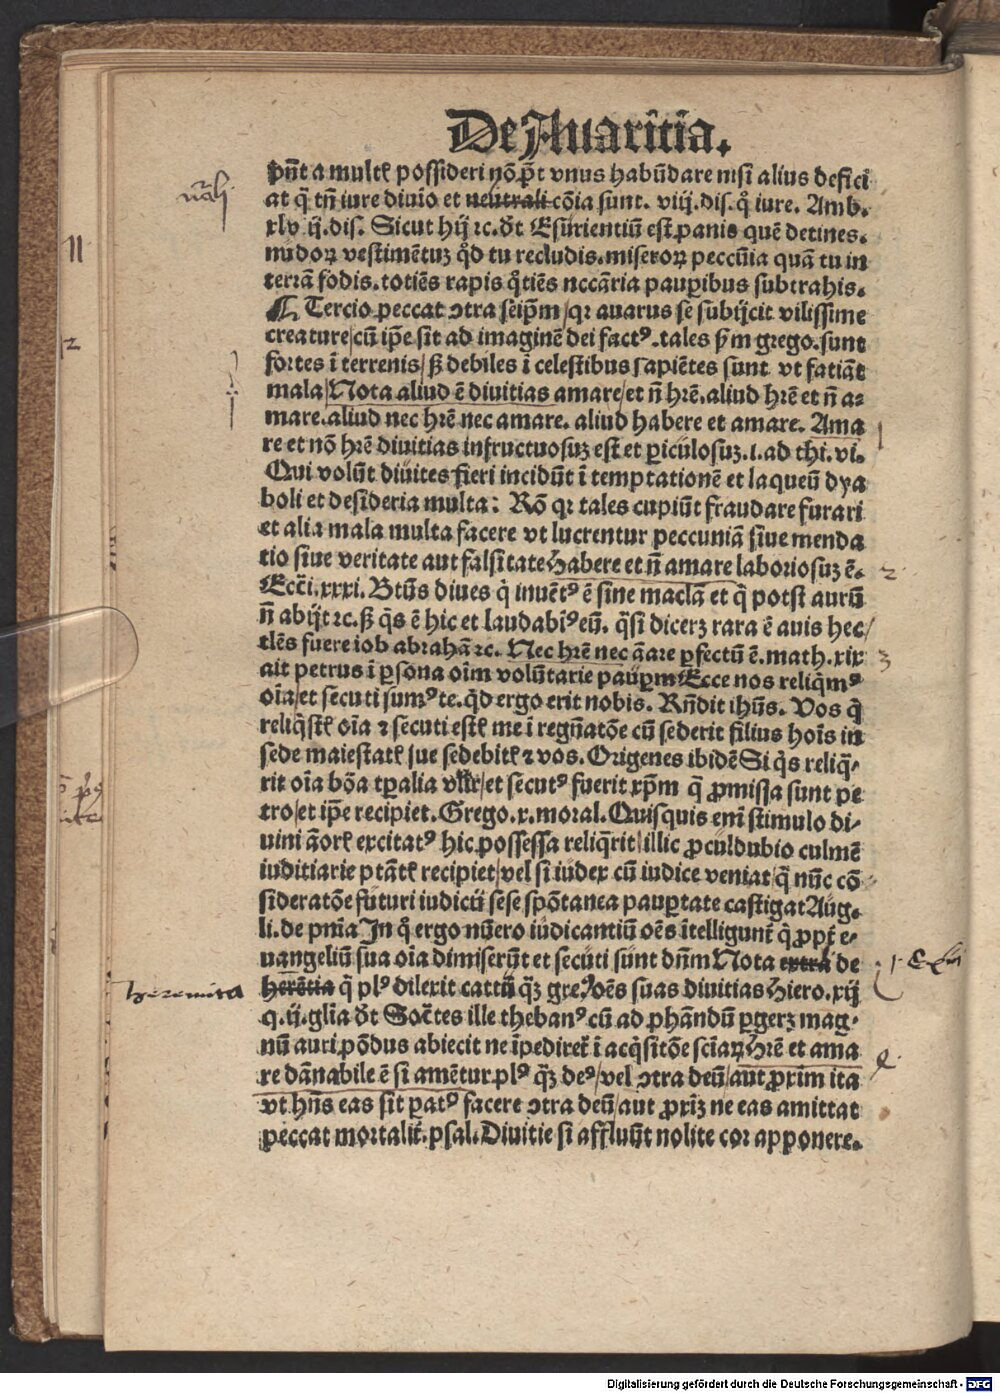 De Auaritia.
pn̄t a multꝭ possideri nō pōt vnus habūdare nisi alius defici
at ꝙ tn̄ iure diuīo et neutrali cōia sunt. viij. dis. q̊ iure. Amb.
xlv ij. dis. Sicut hij ⁊c. dt̄ Esurientiū est panis quē detines.
nudoꝝ vestimētuꝫ q̊d tu recludis. miseroꝝ peccūia quā tu in
terrā fodis. totiēs rapis q̊tiēs nccāria pauꝑibus subtrahis.
Tercio peccat ↄtra seipm̄/qꝛ auarus se subijcit vilissime
creature/cū ip̄e sit ad imaginē dei factꝰ. tales ẜm grego. sunt
fortes ī terrenis/ß debiles ī celestibus sapiētes sunt vt fatiāt
mala/Nota aliud ē diuitias amare/et n̄ hr̄e. aliud hr̄e et n̄ a⸗
mare. aliud nec hr̄e nec amare. aliud habere et amare. Ama
re et nō hr̄e diuitias infructuosuꝫ est et ꝑiculosuꝫ. i. ad thi. vi.
Qui volūt diuites fieri incidūt ī temptationē et laqueū dya
boli et desideria multa: Rō qꝛ tales cupiūt fraudare furari
et alia mala multa facere vt lucrentur peccuniā siue menda
tio siue veritate aut falsitate Habere et n̄ amare laboriosuꝫ ē.
Ecci. xxxi. Btūs diues q̇ inuētꝰ ē sine macla et q̄ potsi aurū
n̄ abijt ⁊c. ß q̇s ē hic et laudabiꝰ eū. q̄si dicerꝫ rara ē auis hec/
tlēs fuere iob abrahā ⁊c. Nec hr̄e nec āare ꝑfectū ē. math. xix
ait petrus ī ꝑsona oīm volūtarie pauꝑm Ecce nos reliq̇mꝰ
oīa/et secuti sumꝰ te. q̇d ergo erit nobis. Rn̄dit ihūs. Vos q̇
reliq̇stꝭ oīa ⁊ secuti estꝭ me ī regn̄atōe cū sederit filius hoīs in
sede maiestatꝭ sue sedebitꝭ ⁊ vos. Origenes ibidē Si q̇s reliq̄⸗
rit oīa bōa tꝑalia et secutꝰ fuerit xp̄m q̄ ꝓmissa sunt pe
tro/et ip̄e recipiet. Grego. x. moral. Quisquis enī stimulo di⸗
uini āorꝭ excitatꝰ hic possessa reliq̄rit/illic ꝓculdubio culmē
iuditiarie ptātꝭ recipiet/vel si iudex cū iudice veniat/q̄ nūc cō⸗
sideratōe futuri iudicij sese spōtanea pauꝑtate castigat Aug.
li. de pnīa In q̊ ergo nūero iudicantiū oēs ītelligunt q̇ ꝓpt̄ e⸗
uangeliū sua oīa dimiserūt et secuti sunt dn̄m Nota extra de
herētia q̄ plꝰ dilexit cattū q̄ꝫ gre. oēs suas diuitias Hiero. xij
q. ij. glīa dt̄ Socr̄tes ille thebanꝰ cū ad ꝓhandū ꝑgerꝫ mag⸗
nū auri pōdus abiecit ne īpediret̄ ī acq̇sitōe sciaꝝ Hr̄e et ama
re dānabile ē si amētur plꝰ q̄ꝫ deꝰ/vel ↄtra deū/aut ꝓxim ita
vt hn̄s eas sit patꝰ facere ↄtra deū/aut ꝓxiꝫ ne eas amittat
peccat mortalit̄. psal. Diuitie si affluūt nolite cor apponere.
11
2
3
heremita
Digitalisierung gefördert durch die Deutsche Forschungsgemeinschaft - DFG